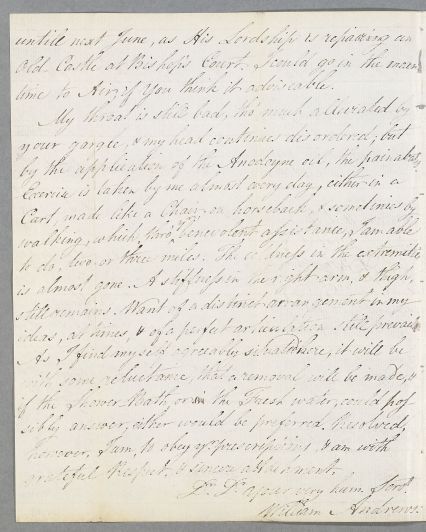 untill next June, as His Lordship is repairing an
Old Castle at Bishops Court. I could go in the mean
time to Air, if You think it adviceable.
My throat is still bad, tho' much alleviated by
your gargle, & my head continues disordered; but
by the application of the Anodyne oil, the pain abates,
Exercise is taken by me almost every day, either in a
Cart made like a Chair, on horseback, & sometimes by
walking, which, thro' benevolent assistance, I am able
to do, two, or three miles. The coldness in the extremities
is almost gone. A stiffness in the right arm, & thigh,
still remains. Want of a distinct arrangement in my
ideas, at times, & of a perfect articulation still prevails
As I find myself agreeably situated here, it will be
with some reluctance, that a removal will be made, &
if the Shower Bath, or in the Fresh water, could pos
sibly answer, either would be preferred. Resolved,
however, I am, to obey yr. prescriptions, & am with
grateful Respect, & sincere attachment,
Dr. Sr. your very hum. Servt.
William Andrews.